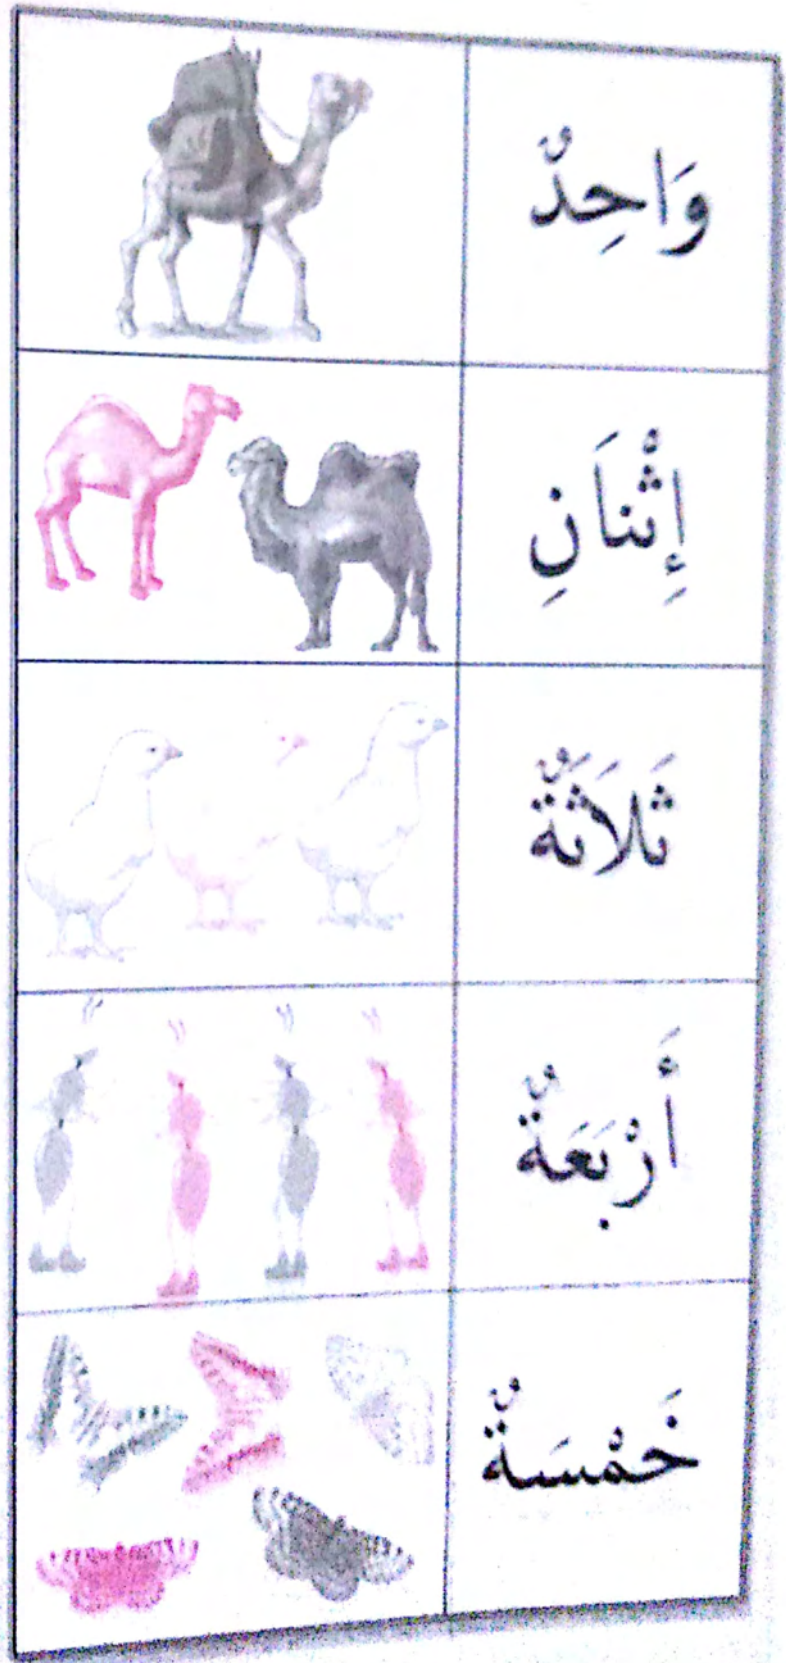 وَاحِدٌ
إِثْنَانِ
ثَلَاثَةٌ
أَرْبَعَةٌ
خَمْسَةٌ